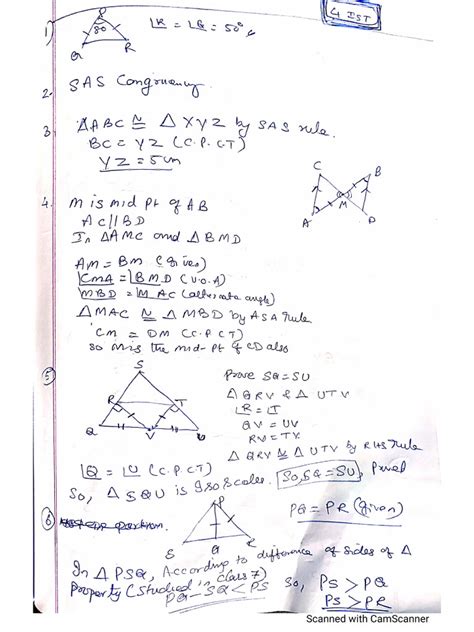 4 IST
1) P 80 Q R ∠R = ∠Q = 50°
2. SAS Congruency.
3. △ABC ≅ △XYZ by SAS rule.
BC = YZ (C.P.C.T)
YZ = 5cm
C B M A D
4. M is mid Pt of AB
AC || BD
In △AMC and △BMD
AM = BM (Given)
∠CMA = ∠BMD (V.O.A)
∠MBD = ∠MAC (alternate angle)
△MAC ≅ △MBD by ASA rule
CM = DM (C.P.C.T)
So M is the mid-pt of CD also
5) S R T Q V U
Prove SQ = SU
△QRV & △UTV
∠R = ∠T
QV = UV
RV = TV
△QRV ≅ △UTV by RHS rule
∠Q = ∠U (C.P.C.T) So, SQ = SU, Proved
So, △SQU is Isosceles.
6) P S Q R PQ = PR (given)
In △PSQ, According to difference of sides of △
property (Studied in class 7) So, PS > PQ
PQ - SQ < PS PS > PR
Scanned with CamScanner